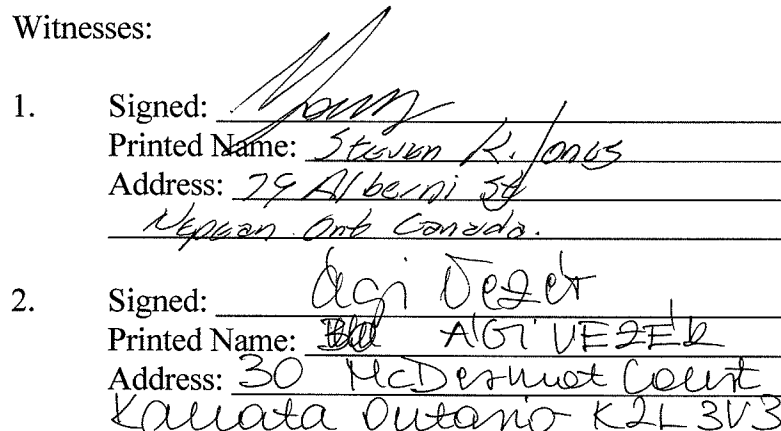 Witnesses:
1. Signed:
Printed Name: Steven R. Jones
Address: 79 Alberni St
Nepean Ont Canada.
2. Signed: Agi Vezer
Printed Name: AGI VEZER
Address: 30 McDermot Court
Kanata Ontario K2L 3V3